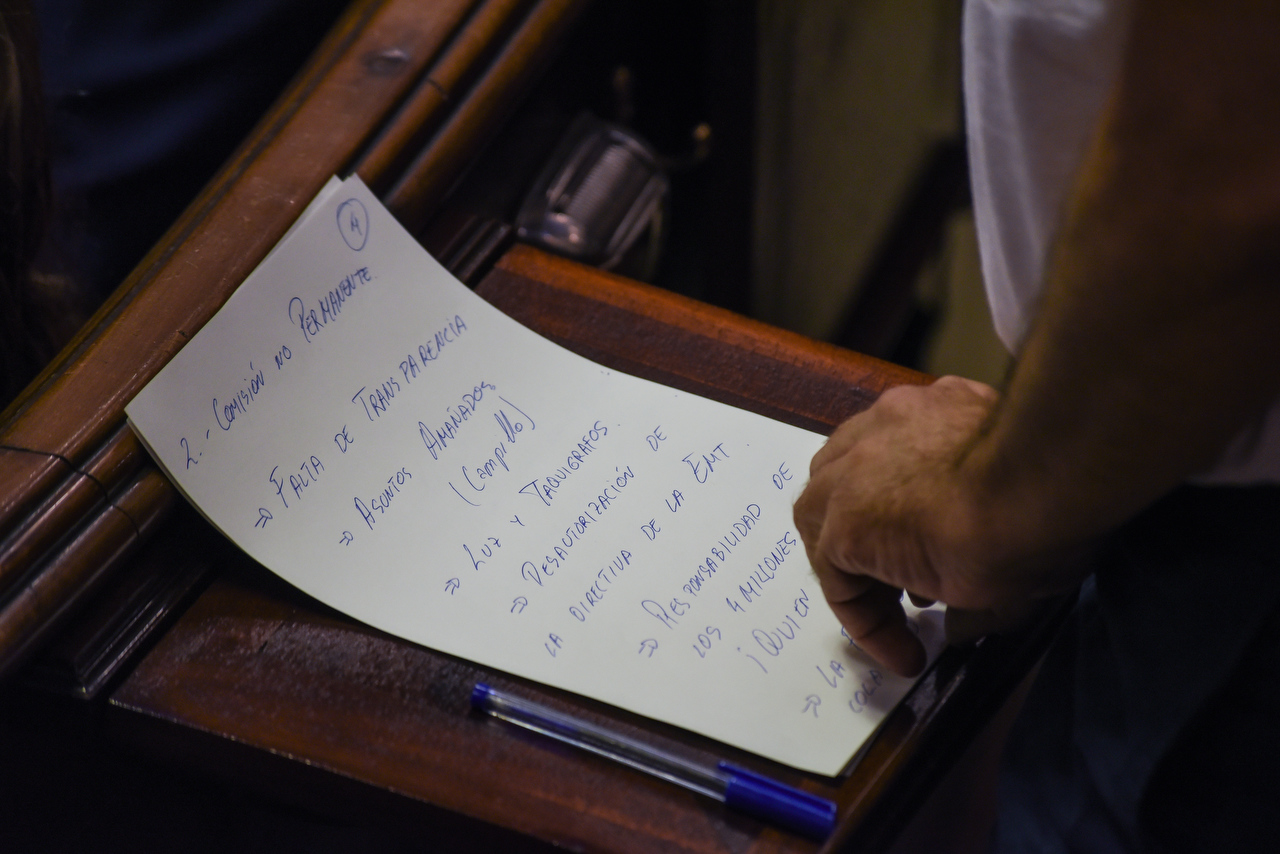 4
2.- COMISIÓN NO PERMANENTE
⇒ FALTA DE TRANSPARENCIA
⇒ ASUNTOS AMAÑADOS
(Campillo)
⇒ LUZ Y TAQUIGRAFOS.
⇒ DESAUTORIZACIÓN DE
LA DIRECTIVA DE LA EMT
⇒ RESPONSABILIDAD DE
LOS 4 MILLONES
¡QUIEN
⇒ LA